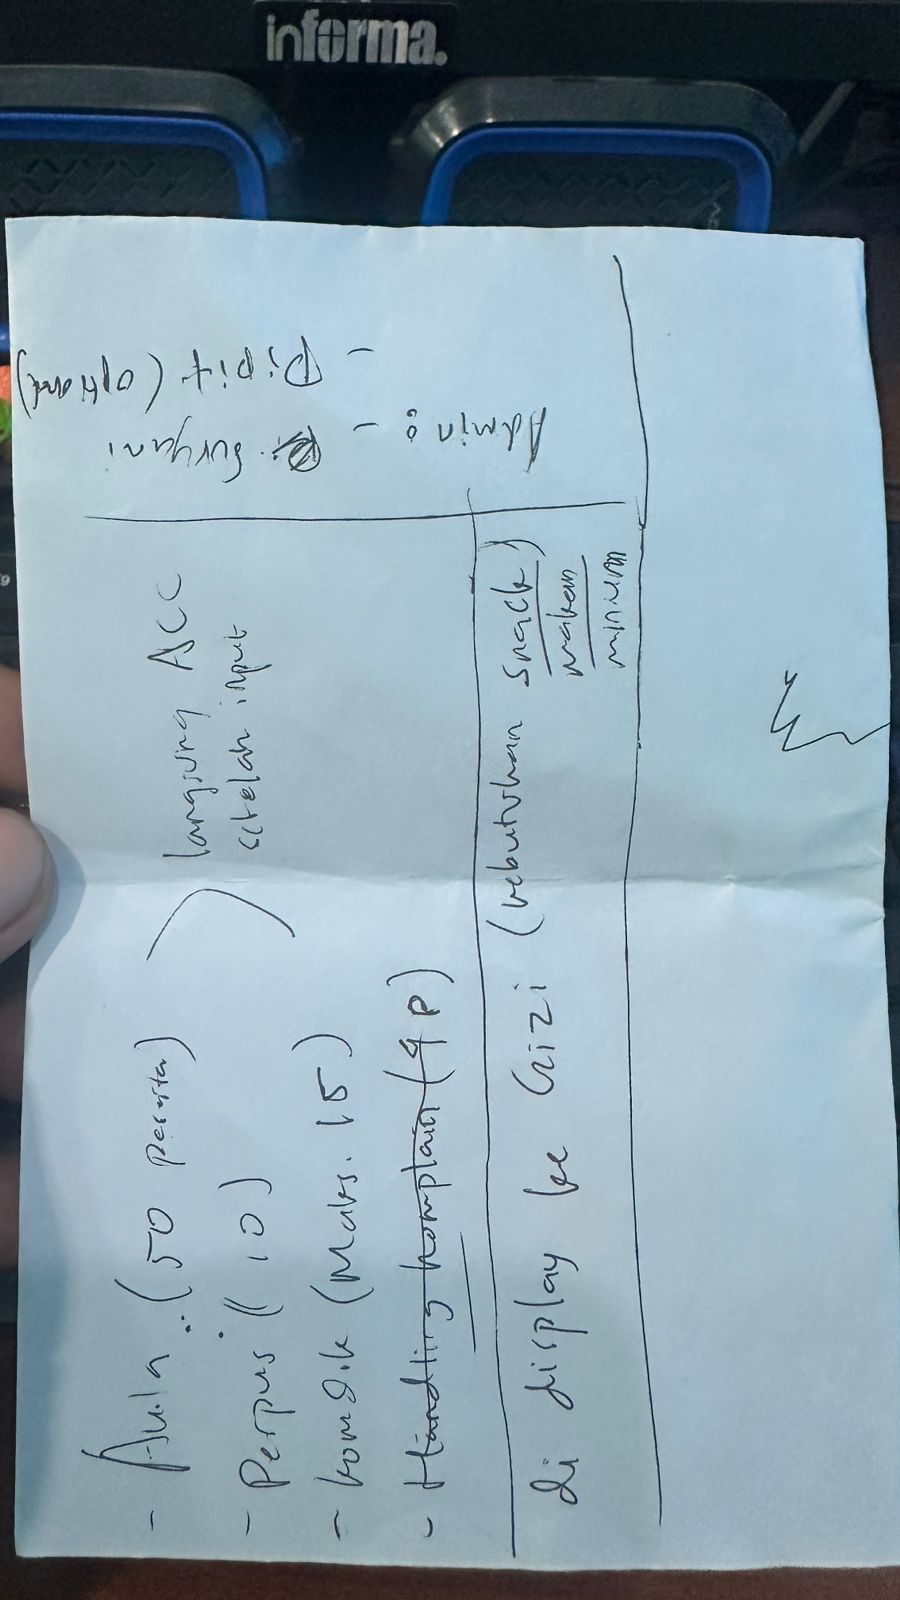 - Aula (50 peserta)
- Perpus (10)
- komdik (Maks. 15)
- Handling komplain (4 P)
langsung ACC
setelah input
di display ke Gizi (kebutuhan snack)
makan
minum
Admin : - Suryani
- Pipit (optional)
informa.